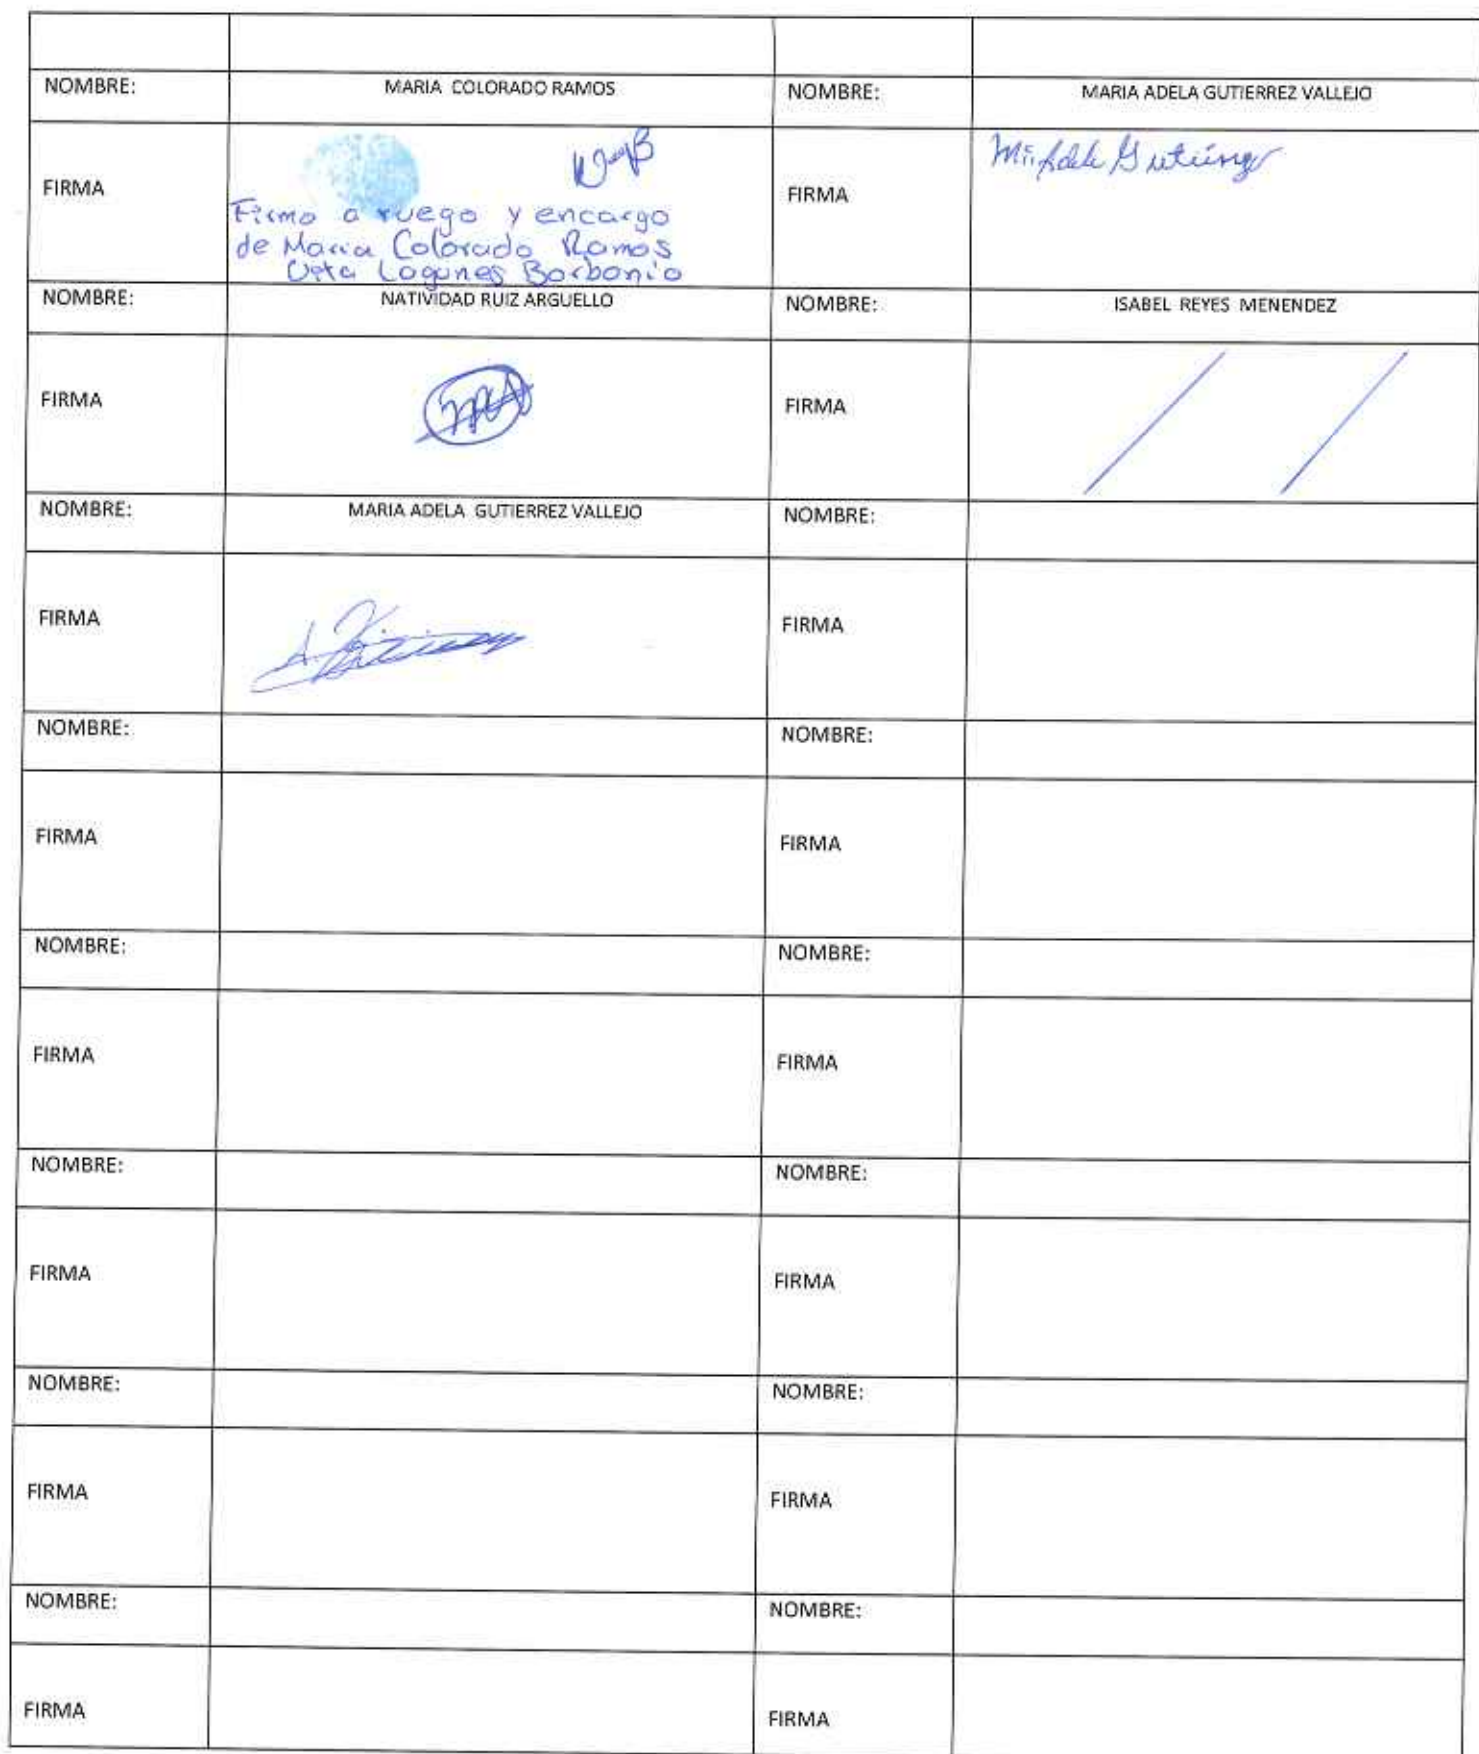 NOMBRE: MARIA COLORADO RAMOS NOMBRE: MARIA ADELA GUTIERREZ VALLEJO
FIRMA FIRMA
Firmo a ruego y encargo
de Maria Colorado Ramos
Lagunes Borbonio
NOMBRE: NATIVIDAD RUIZ ARGUELLO NOMBRE: ISABEL REYES MENENDEZ
FIRMA FIRMA
NOMBRE: MARIA ADELA GUTIERREZ VALLEJO NOMBRE:
FIRMA FIRMA
NOMBRE: NOMBRE:
FIRMA FIRMA
NOMBRE: NOMBRE:
FIRMA FIRMA
NOMBRE: NOMBRE:
FIRMA FIRMA
NOMBRE: NOMBRE:
FIRMA FIRMA
NOMBRE: NOMBRE:
FIRMA FIRMA